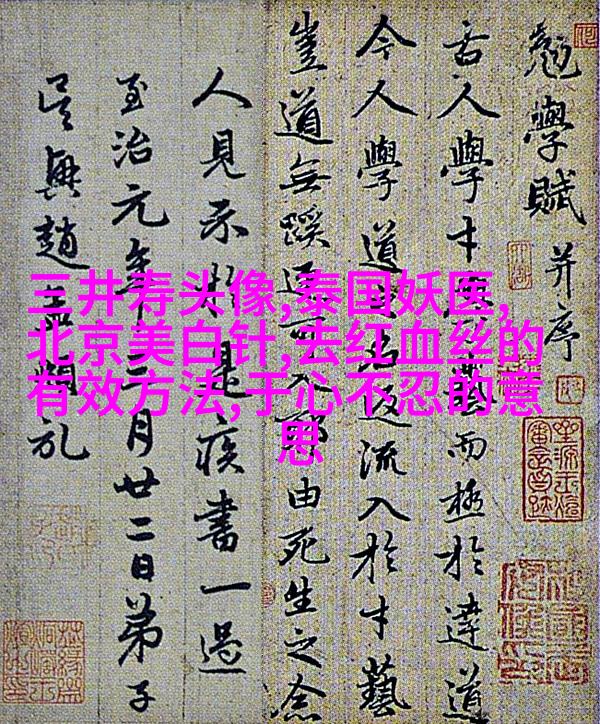 勉學賦并序
古人學才藝而極於達道
今人學道返流入於才藝
豈道無蹊入由死生之念
人見示是疾書一過
至治元年十二月廿二日弟子
吳興趙孟頫
三井寿头像,泰国妖医,
北京美白针,去红血丝的
有效方法,于心不忍的意
思